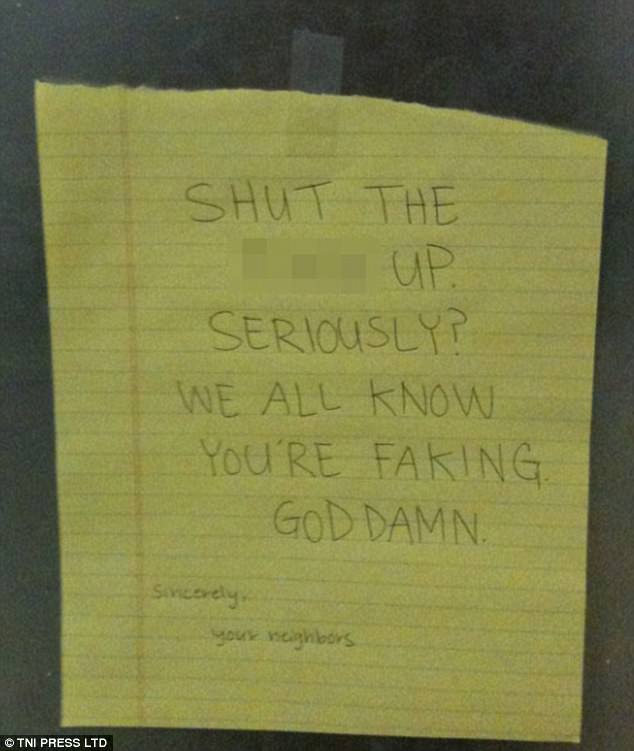 SHUT THE
UP.
SERIOUSLY?
WE ALL KNOW
YOU'RE FAKING.
GODDAMN.
Sincerely,
your neighbors
© TNI PRESS LTD